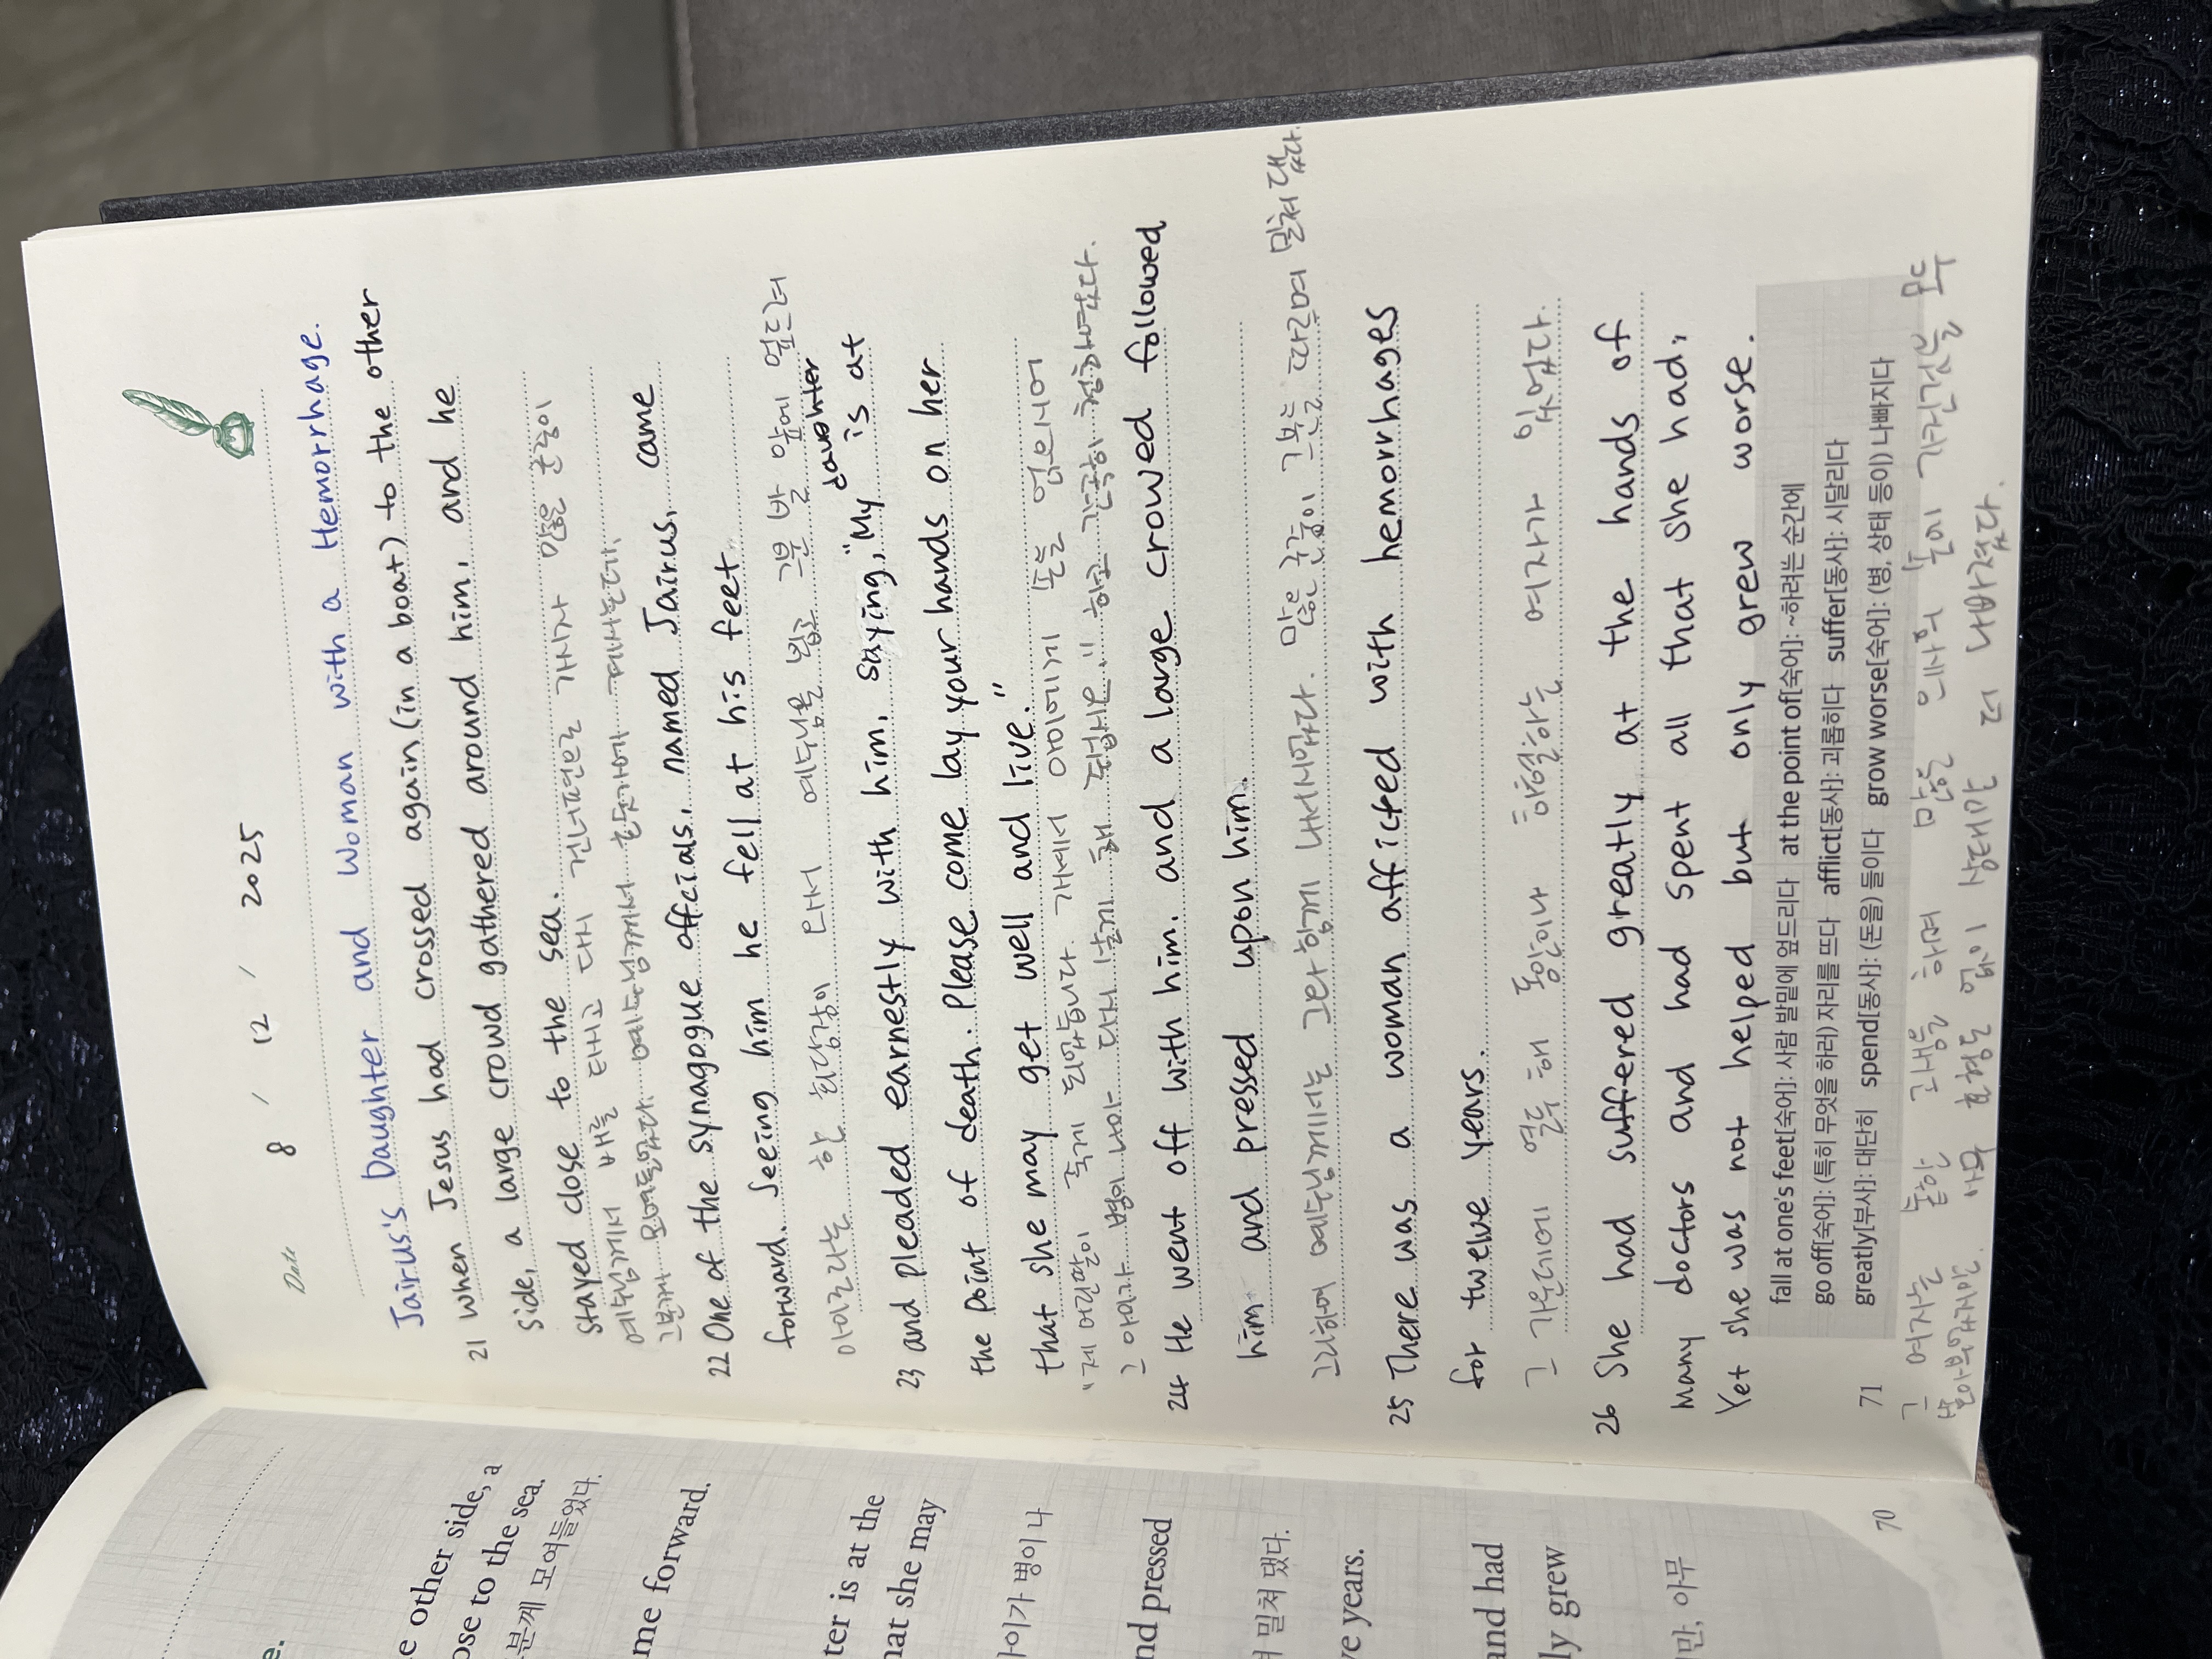 e.
e other side, a
ose to the sea.
분께 모여들었다.
me forward.
ter is at the
hat she may
아이가 병이 나
nd pressed
며 밀쳐 댔다.
ve years.
and had
ly grew
지만, 아무
70
Date 8 / 12 / 2025
Jairus's Daughter and Woman with a Hemorrhage.
21 when Jesus had crossed again (in a boat) to the other
side, a large crowd gathered around him, and he
stayed close to the sea.
예수님께서 배를 타시고 다시 건너편으로 가시자 많은 군중이
그분께 모여들었다. 예수님께서 호숫가에 계시는데,
22 One of the synagogue officials, named Jairus, came
forward. Seeing him he fell at his feet
야이로라는 한 회당장이 와서 예수님을 뵙고 그분 발 앞에 엎드려
23 and pleaded earnestly with him, saying, "My daughter is at
the point of death. Please come lay your hands on her
that she may get well and live."
"제 어린 딸이 죽게 되었습니다. 가셔서 아이에게 손을 얹으시어
그 아이가 병이 나아 다시 살게 해 주십시오." 하고 간곡히 청하였다.
24 He went off with him. and a large crowed followed
him and pressed upon him.
그리하여 예수님께서는 그와 함께 나서시었다. 많은 군중이 그분을 따르며 밀쳐 댔다.
25 There was a woman afficted with hemorrhages
for twelve years.
그 가운데에 열두 해 동안이나 하혈하는 여자가 있었다.
26 She had suffered greatly at the hands of
many doctors and had spent all that she had,
Yet she was not helped but only grew worse.
fall at one's feet[숙어]: 사람 발밑에 엎드리다 at the point of[숙어]: ~하려는 순간에
go off[숙어]: (특히 무엇을 하러) 자리를 뜨다 afflict[동사]: 괴롭히다 suffer[동사]: 시달리다
greatly[부사]: 대단히 spend[동사]: (돈을) 들이다 grow worse[숙어]: (병, 상태 등이) 나빠지다
71
그 여자는 숱한 고생을 하며 많은 의사의 손에 가진 것을 모두
쏟아부었지만, 아무 효험도 없이 상태만 더 나빠졌다.